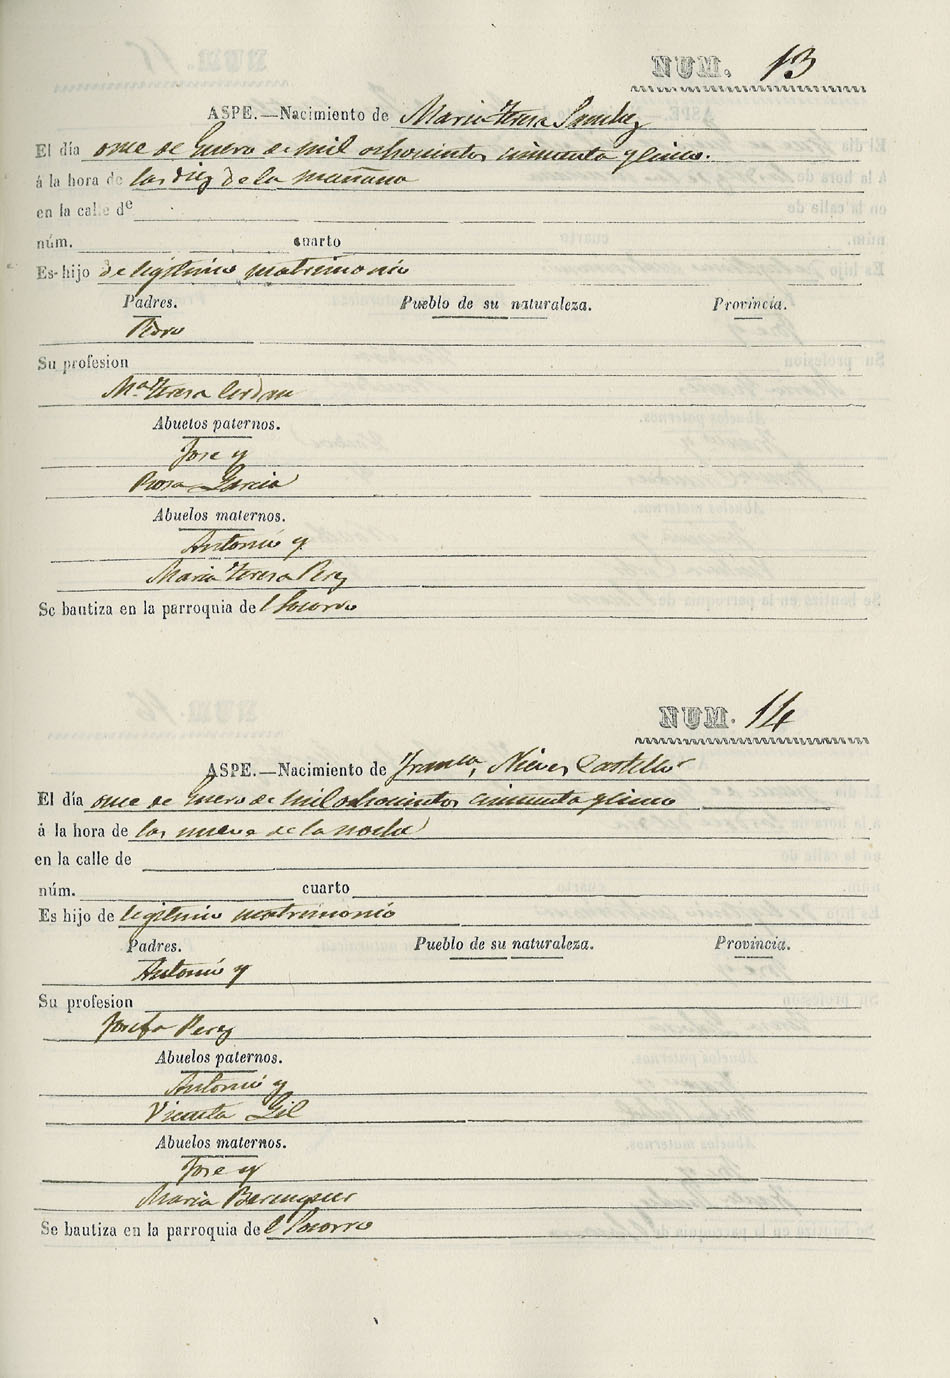 NUM. 13
ASPE.—Nacimiento de Maria Teresa Sanchez
El día once de Enero de mil ochocientos cincuenta y cinco.
á la hora de las diez de la mañana
en la calle de
núm. cuarto
Es hijo de legitimo matrimonio
Padres. Pueblo de su naturaleza. Provincia.
Pedro
Su profesion
Mª Teresa Cerdan
Abuelos paternos.
Jose y
Rosa Garcia
Abuelos maternos.
Antonio y
Maria Teresa Perez
Se bautiza en la parroquia del Socorro
NUM. 14
ASPE.—Nacimiento de Franca, Nieves Castelló
El día once de Enero de mil ochocientos cincuenta y cinco
á la hora de las nueve de la noche
en la calle de
núm. cuarto
Es hijo de legitimo matrimonio
Padres. Pueblo de su naturaleza. Provincia.
Antonio y
Su profesion
Josefa Perez
Abuelos paternos.
Antonio y
Vicenta Gil
Abuelos maternos.
Jose y
Maria Berenguer
Se bautiza en la parroquia del Socorro